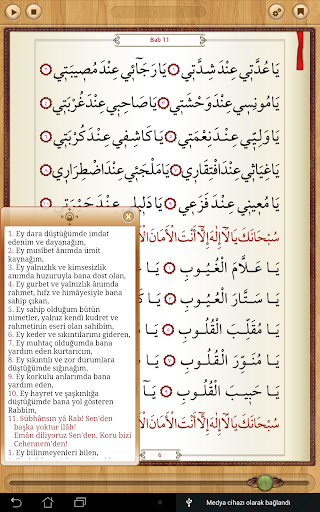 Bab 11
يَا عُدَّتِي عِنْدَ شِدَّتِي يَا رَجَائِي عِنْدَ مُصِيبَتِي
يَا مُونِسِي عِنْدَ وَحْشَتِي يَا صَاحِبِي عِنْدَ غُرْبَتِي
يَا وَلِيِّي عِنْدَ نِعْمَتِي يَا كَاشِفِي عِنْدَ كُرْبَتِي
يَا غِيَاثِي عِنْدَ افْتِقَارِي يَا مَلْجَئِي عِنْدَ اضْطِرَارِي
يَا مُعِينِي عِنْدَ فَزَعِي يَا دَلِيلِي عِنْدَ حَيْرَتِي
سُبْحَانَكَ يَا لَا إِلٰهَ إِلَّا أَنْتَ الْأَمَانَ الْأَمَانَ
يَا عَلَّامَ الْغُيُوبِ يَا
يَا سَتَّارَ الْعُيُوبِ يَا
يَا مُقَلِّبَ الْقُلُوبِ يَا
يَا مُنَوِّرَ الْقُلُوبِ يَا
يَا حَبِيبَ الْقُلُوبِ يَا
سُبْحَانَكَ يَا لَا إِلٰهَ إِلَّا أَنْتَ الْأَمَانَ الْأَمَانَ
6
1. Ey dara düştüğümde imdat
edenim ve dayanağım,
2. Ey musibet ânımda ümit
kaynağım,
3. Ey yalnızlık ve kimsesizlik
anımda huzuruyla bana dost olan,
4. Ey gurbet ve yalnızlık ânımda
rahmet, hıfz ve himâyesiyle bana
sahip çıkan,
5. Ey sahip olduğum bütün
nimetler, yalnız kendi kudret ve
rahmetinin eseri olan sahibim,
6. Ey keder ve sıkıntılarımı gideren,
7. Ey muhtaç olduğumda bana
yardım eden kurtarıcım,
8. Ey sıkıntılı ve zor durumlara
düştüğümde sığınağım,
9. Ey korkulu anlarımda bana
yardım eden,
10. Ey hayret ve şaşkınlığa
düştüğümde bana yol gösteren
Rabbim,
11. Sübhânsın yâ Rab! Sen'den
başka yoktur ilâh!
Emân diliyoruz Sen'den, Koru bizi
Cehennem'den!
1. Ey bilinmeyenleri bilen,
Medya cihazı olarak bağlandı